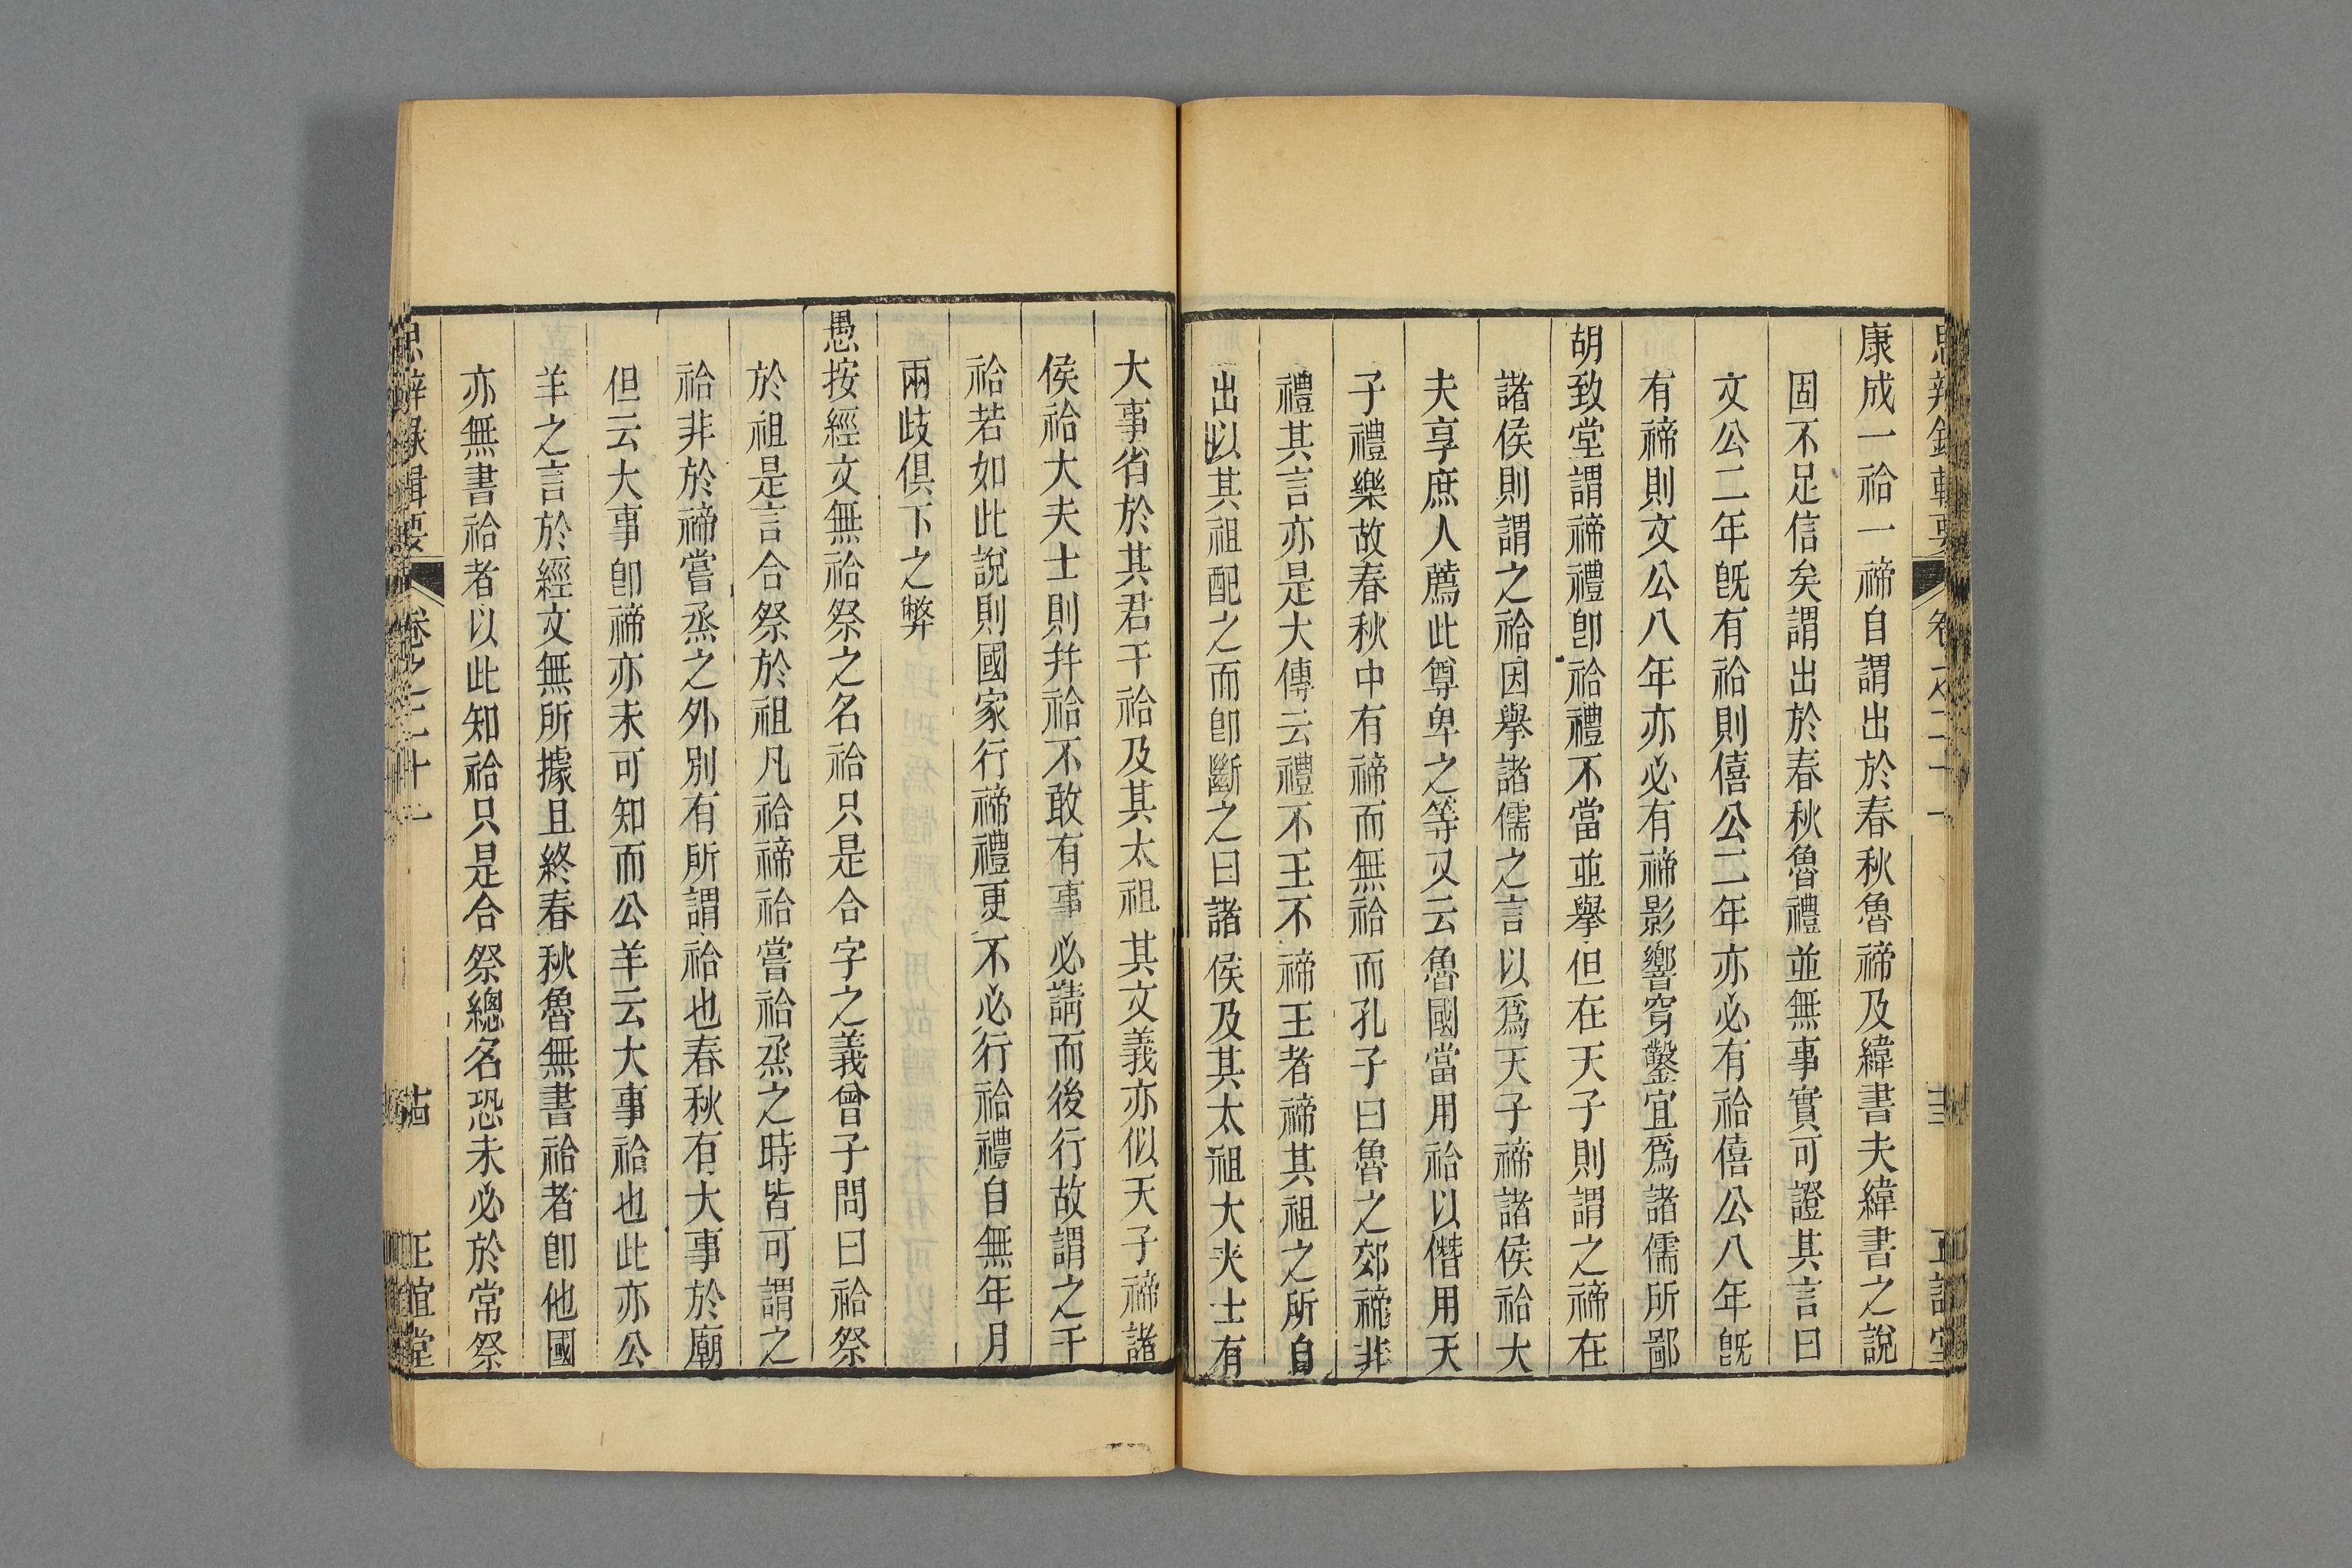 康成一祫一禘自謂出於春秋魯禘及緯書夫緯書之說
固不足信矣謂出於春秋魯禮並無事實可證其言曰
文公二年旣有祫則僖公二年亦必有祫僖公八年旣
有禘則文公八年亦必有禘影響穿鑿宜爲諸儒所鄙
胡致堂謂禘禮卽祫禮不當並舉但在天子則謂之禘在
諸侯則謂之祫因舉諸儒之言以爲天子禘諸侯祫大
夫享庶人薦此尊卑之等又云魯國當用祫以僭用天
子禮樂故春秋中有禘而無祫而孔子曰魯之郊禘非
禮其言亦是大傳云禮不王不禘王者禘其祖之所自
出以其祖配之而卽斷之曰諸侯及其太祖大夾士有
大事省於其君干祫及其太祖其文義亦似天子禘諸
侯祫大夫士則幷祫不敢有事必請而後行故謂之干
祫若如此說則國家行禘禮更不必行祫禮自無年月
兩歧俱下之弊
愚按經文無祫祭之名祫只是合字之義曾子問曰祫祭
於祖是言合祭於祖凡祫禘祫嘗祫烝之時皆可謂之
祫非於禘嘗烝之外別有所謂祫也春秋有大事於廟
但云大事卽禘亦未可知而公羊云大事祫也此亦公
羊之言於經文無所據且終春秋魯無書祫者卽他國
亦無書祫者以此知祫只是合祭總名恐未必於常祭
思辨錄輯要
卷之二十一
正誼堂